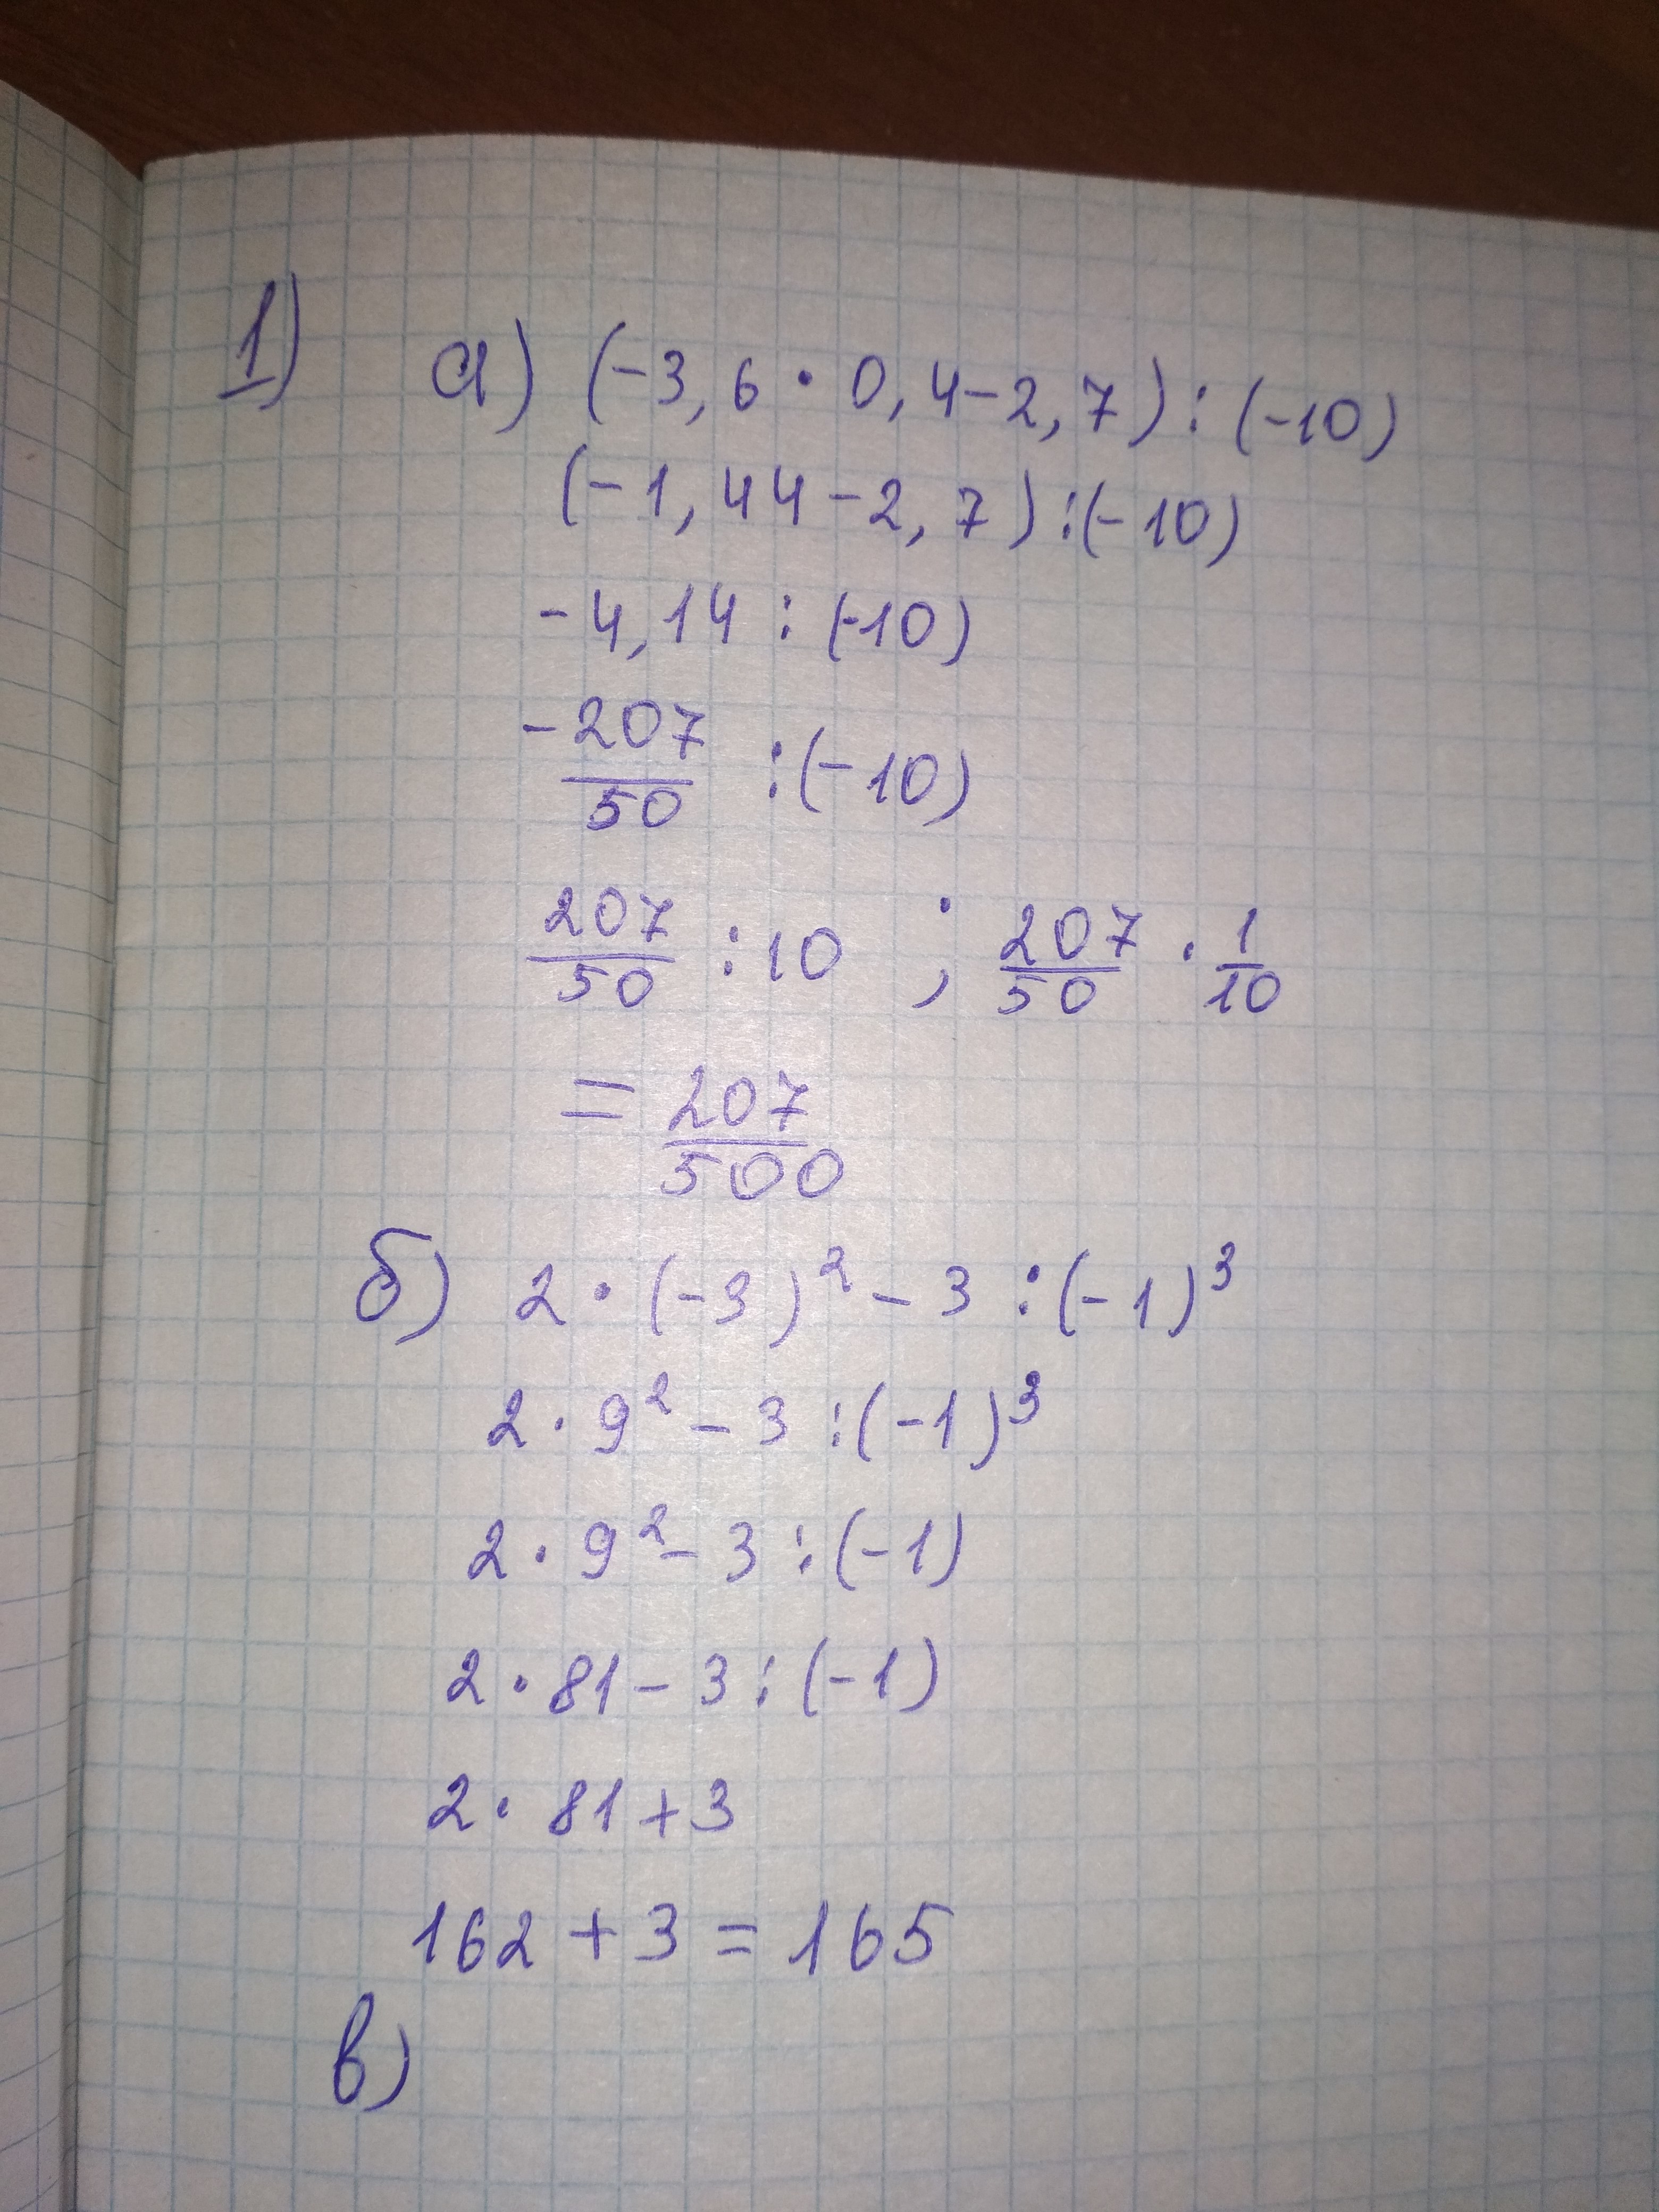 1) а) (-3,6 · 0,4-2,7) : (-10)
(-1,44-2,7) : (-10)
-4,14 : (-10)
-207/50 : (-10)
207/50 : 10 ; 207/50 · 1/10
= 207/500
б) 2 · (-3)² - 3 : (-1)³
2 · 9² - 3 : (-1)³
2 · 9² - 3 : (-1)
2 · 81 - 3 : (-1)
2 · 81 + 3
162 + 3 = 165
в)